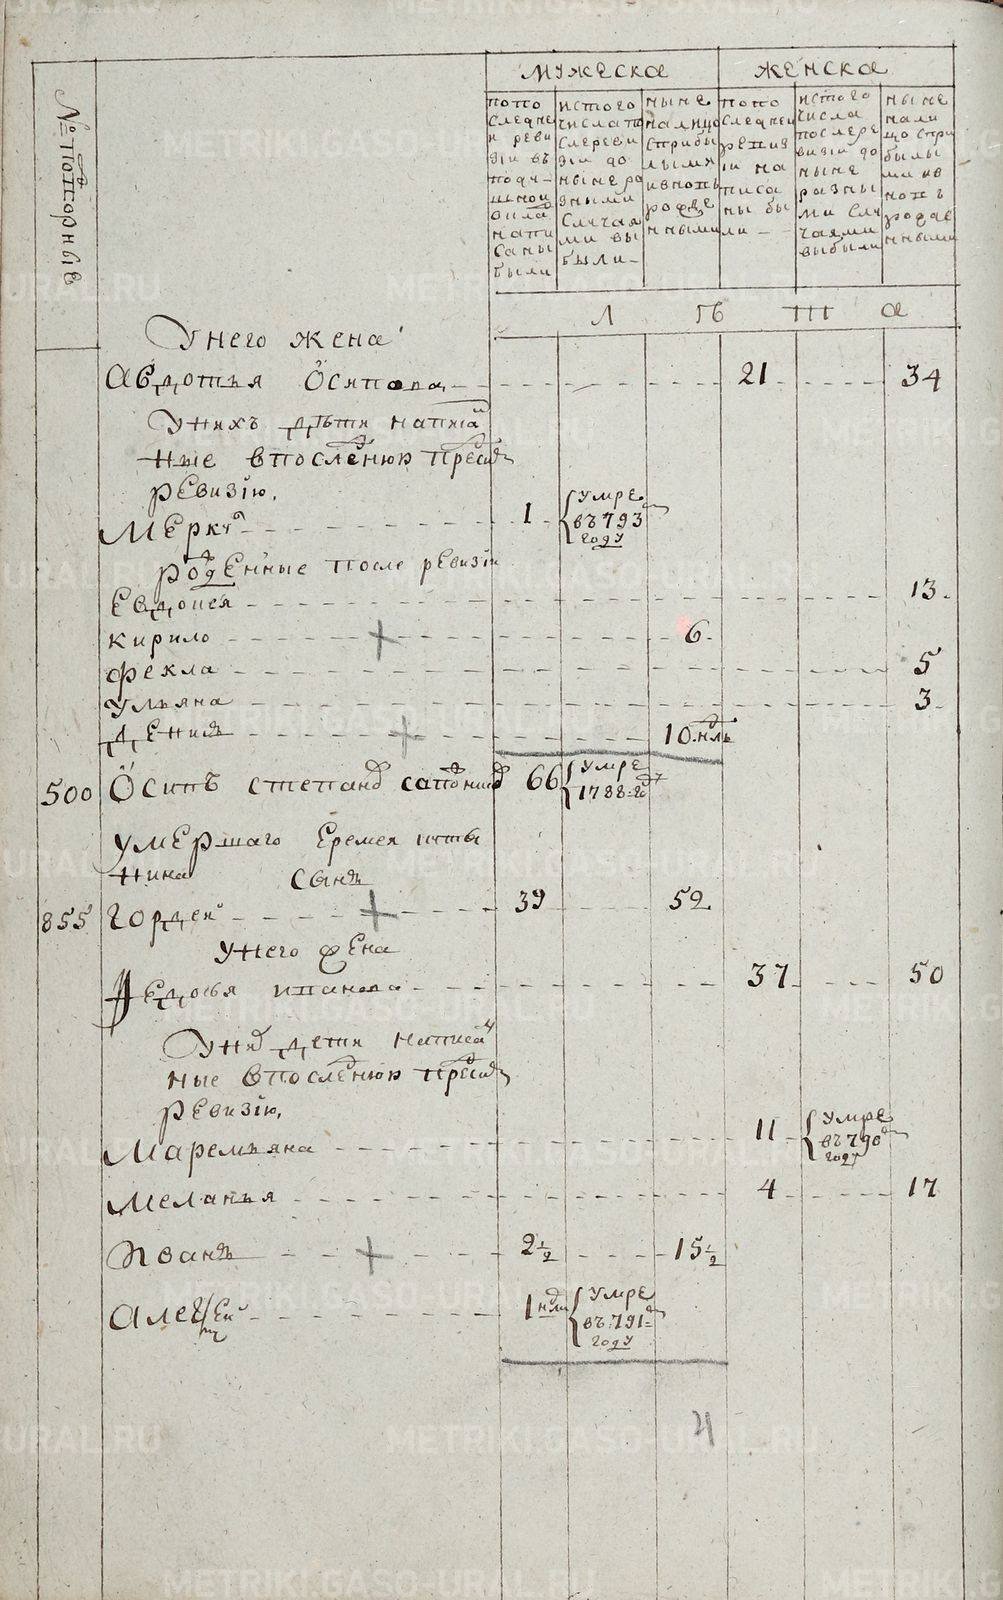 № попорные
МУЖЕСКА
ЖЕНСКА
попо
следне
и реви
зіи въ
поду-
шной
окла
напи
саны
были
истого
числа по
слереви
зіи до
ныне ра
зными
случая
ми вы
были-
ныне
налицо
сприбы
лыми
ивновь
рожде
нными
попо
следней
ревиз
іи на
писа
ны бы
ли - -
истого
числа
послере
визіи до
ныне
разны
ми слу
чаями
выбыли
ныне
нали
цо спри
былы
ми ив
новь
рожде
нными
Л ѣ т а
Унего жена
Авдотья Осипова 21 34
Унихъ дѣти написа
ные впоследнюю пред
ревизію.
Меркур 1 умре
въ 793
году
рожденные после ревизіи
Евдокея 13
Кирило 6
Фекла 5
Ульяна 3
Денисъ 10 нль
500 Осипъ степанов сапожников 66 умре
1788 год
умершаго Еремея
нина сынъ
855 Гордей 39 52
Унего жена
Авдосья иванова 37 50
Уних дети написа
ные впоследнюю пред
ревизію.
Маремьяна 11 умре
въ 790
году
Меланья 4 17
Иванъ 2½ 15½
Алексей 1 нль умре
въ 791
году
4
METRIKI.GASO-URAL.RU